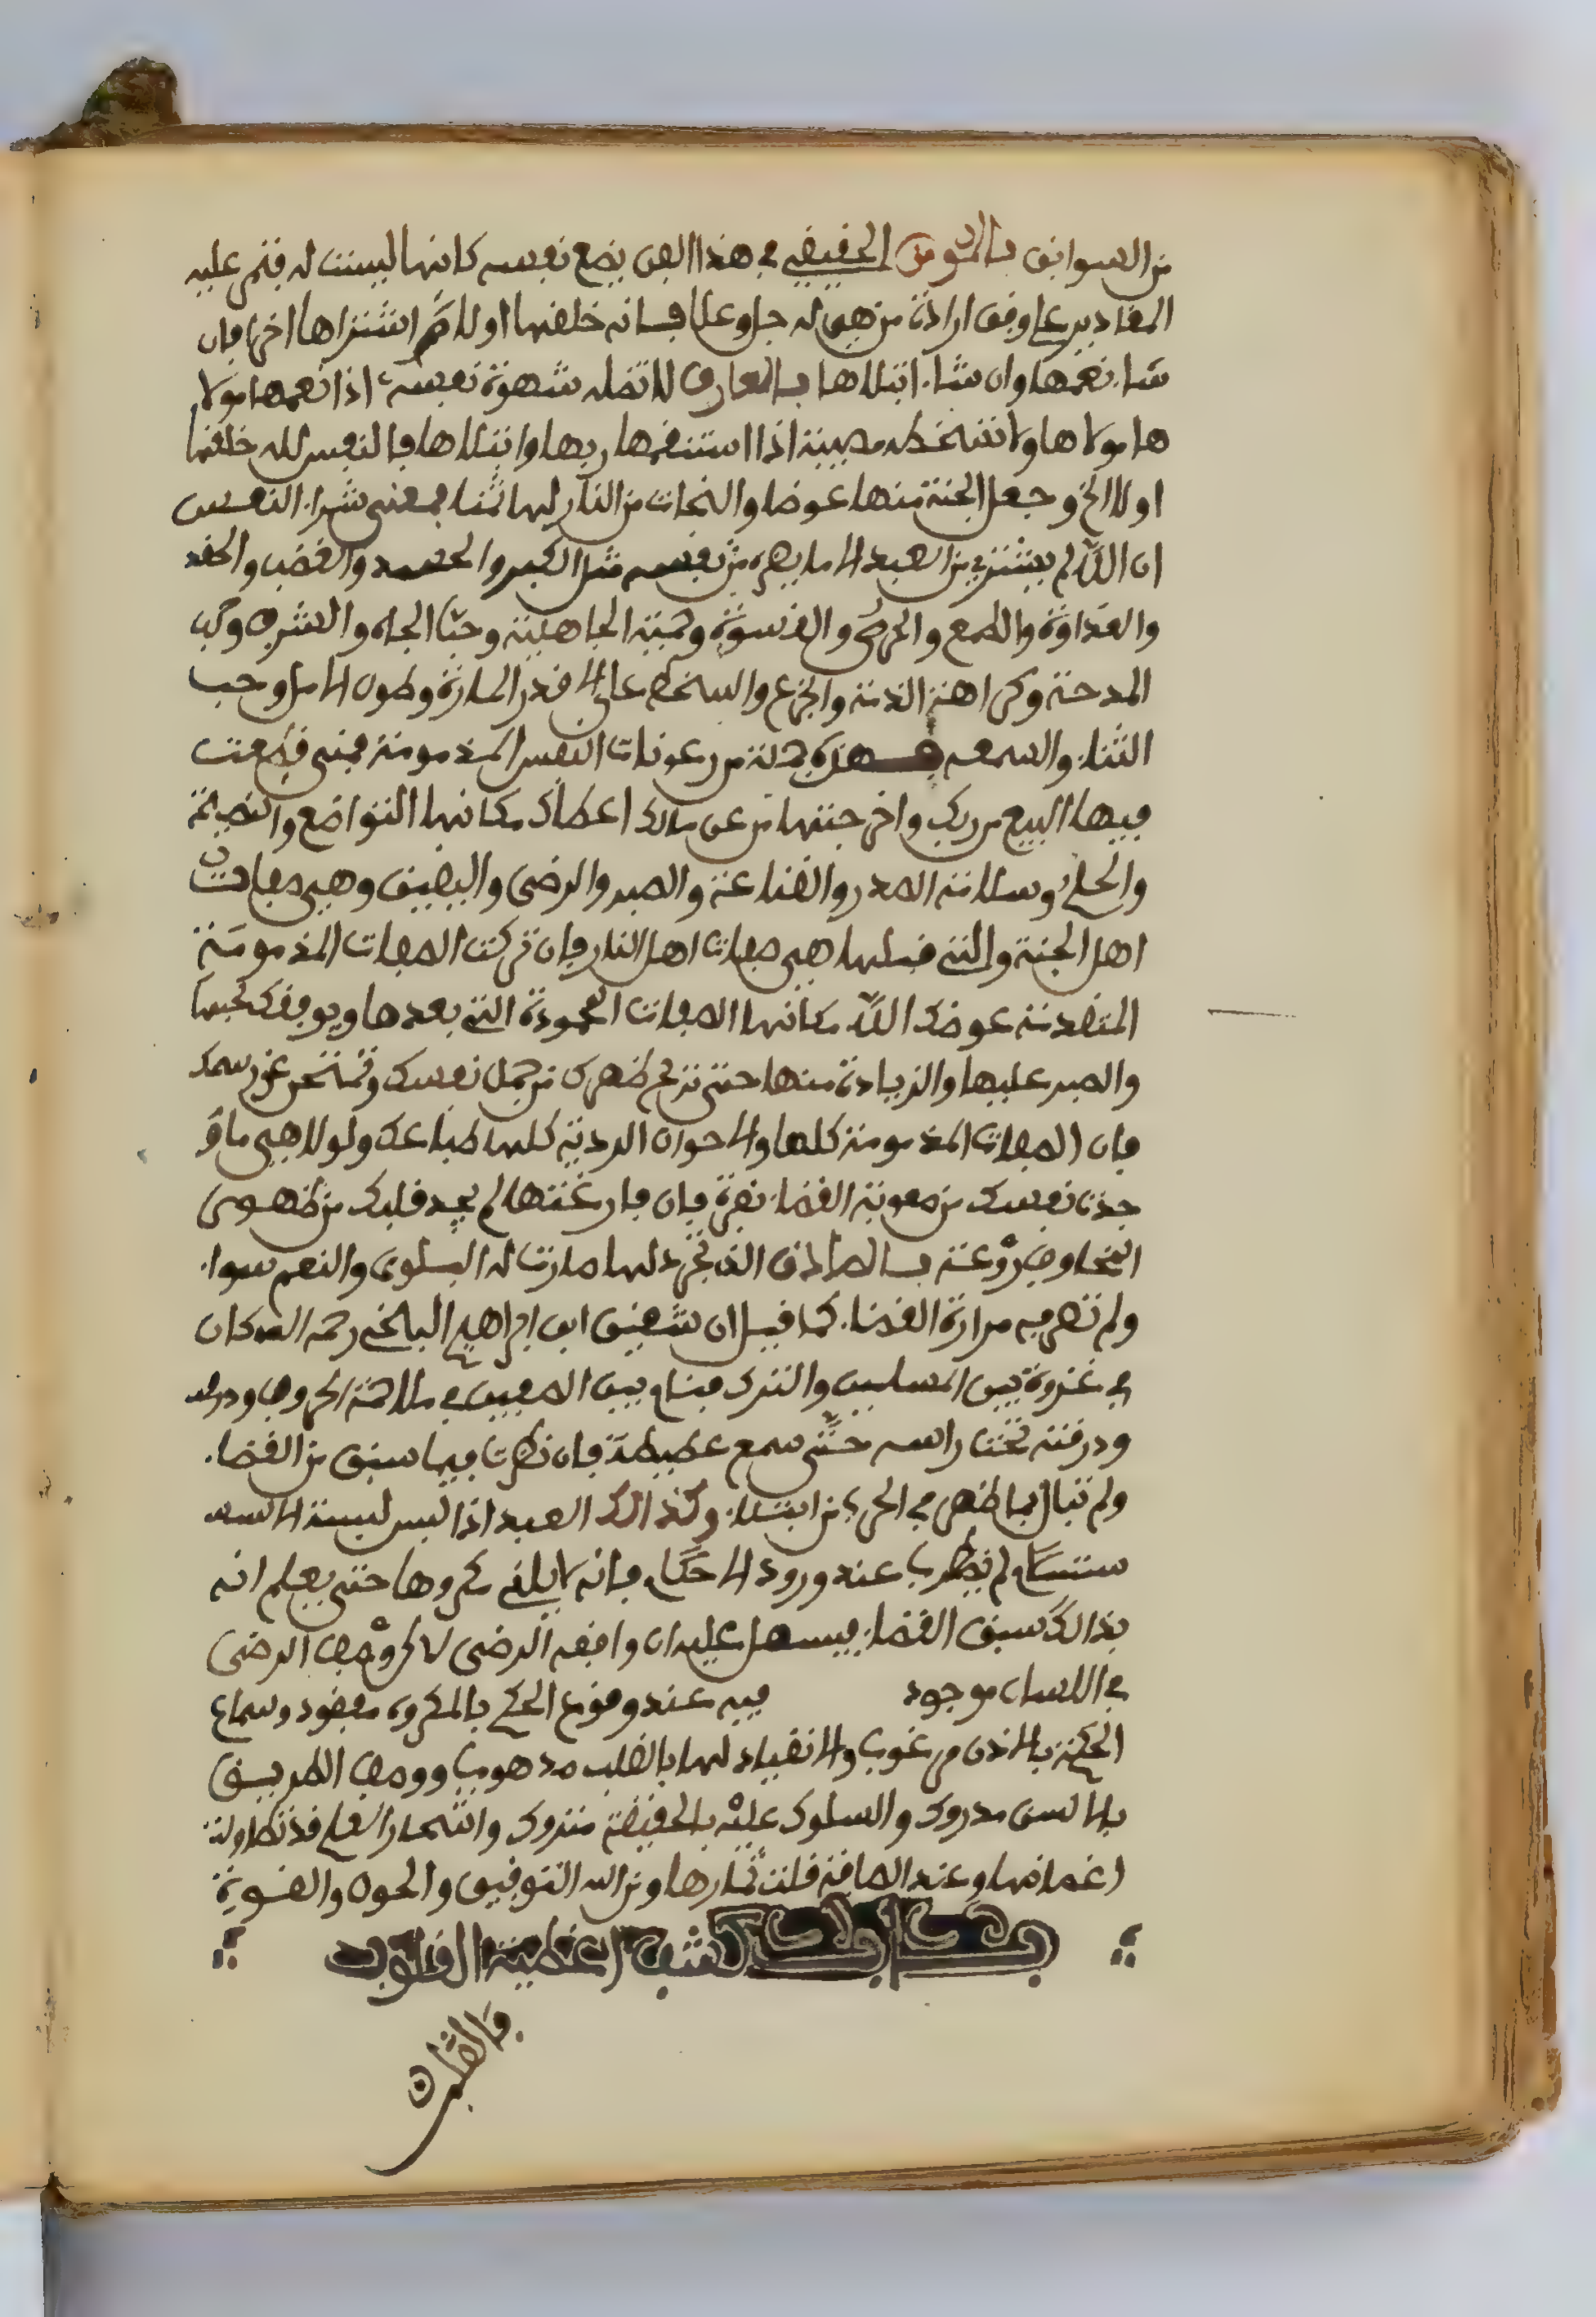 من السوابق فالمومن الحقيقي في هذا الفن يضع نفسه كانها ليست له فتمر عليه
المقادير على وفق ارادة من هي له جل وعلا فانه خلقها اولا ثم اشتراها اخرا فان
شاء نعمها وان شاء ابتلاها فالعارف لا تضله شهوة نفسه اذا نعمها مولا
ها مولاها ولا تسخطه مصيبة اذا استنقمها ربها وابتلاها فالنفس لله خلقها
اولا الخ وجعل الجنة منها عوضا والنجات من النار لها ثمنا فمعنى شراء النفس
ان الله لم يشتر من العبد الا ما يظهر من نفسه مثل الكبر والحسد والغضب والحقد
والعداوة والطمع والحرص والقسوة وحمية الجاهلية وحب الجاه والشرف وحب
المدحة وكراهة الذمة والجزع والسخط على الاقدار المارة وطول الامل وحب
الثناء والسمعه فهذه جملة من رعونات النفس المذمومة فمتى قطعت
فيها البيع من ربك واخرجتها من عن مالك اعطاك مكانها التواضع والنصيحة
والحلم وسلامة الصدر والقناعة والصبر والرضى واليقين وهي صفات
اهل الجنة والتي قبلها هي صفات اهل النار فان تركت الصفات المذمومة
المتقدمة عوضك الله مكانها الصفات المحمودة التي بعدها ويوفقك لحبها
والصبر عليها والزيادة منها حتى تزيح ظهرك من حمل نفسك وتمتحى عن رسمك
فان الصفات المذمومة كلها والاحوال الردية كلها طباعك ولولا هي ما و
جدت نفسك من معونة القضاء نفرة فان فارغتها لم يجد قلبك من ظهور
القضاء وفروعه فالصادق الذي تجرد لها صارت له البلوى والنعم سواء
ولم تظهر فيه مرارة القضاء كما قيل ان شقيق ابن ابراهيم البلخي رحمه الله كان
في غزوة بين المسلمين والترك فنام بين الصفين في ملاحمة الحروف ودرقه
ودرقته تحت راسه حتى سمع غطيطه فان نظرت فيما سبق من القضاء
ولم تبال بما ظهر في الحرى من ابتلاء وكذالك العبد اذا لبس لبسة الاسد
ستسلام لم يضطرب عند ورود الاحكام فانه لا يلقى مكروها حتى يعلم انه
بذالك سبق القضاء فيسهل عليه ان وافقه الرضى لا كره وصف الرضى
في اللسان موجود فيه عند وقوع الحكم بالمكروه مفقود وسماع
الحكمة بالاذن مرغوب والانقياد لها بالقلب مرهوب ووصف الطريق
بالالسن مدروك والسلوك عليه بالحقيقة متروك واشجار العلم قد تطاولت
اغصانها وعند الصافة قلت ثمارها ومن الله التوفيق والحول والقوة
باب كشف اغطية القلوب
والقلب